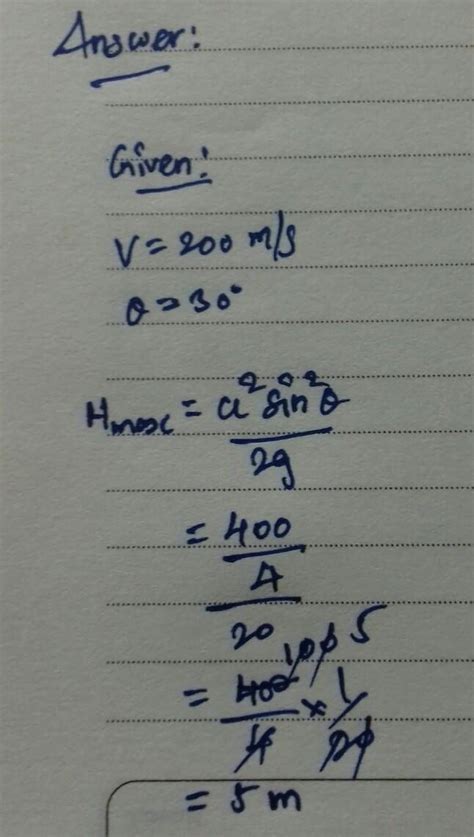 Answer:
Given:
V = 200 m/s
θ = 30°
Hmax = u² sin² θ / 2g
= 400 / 4 / 20
= 400 / 4 × 1 / 20 100 5
= 5 m